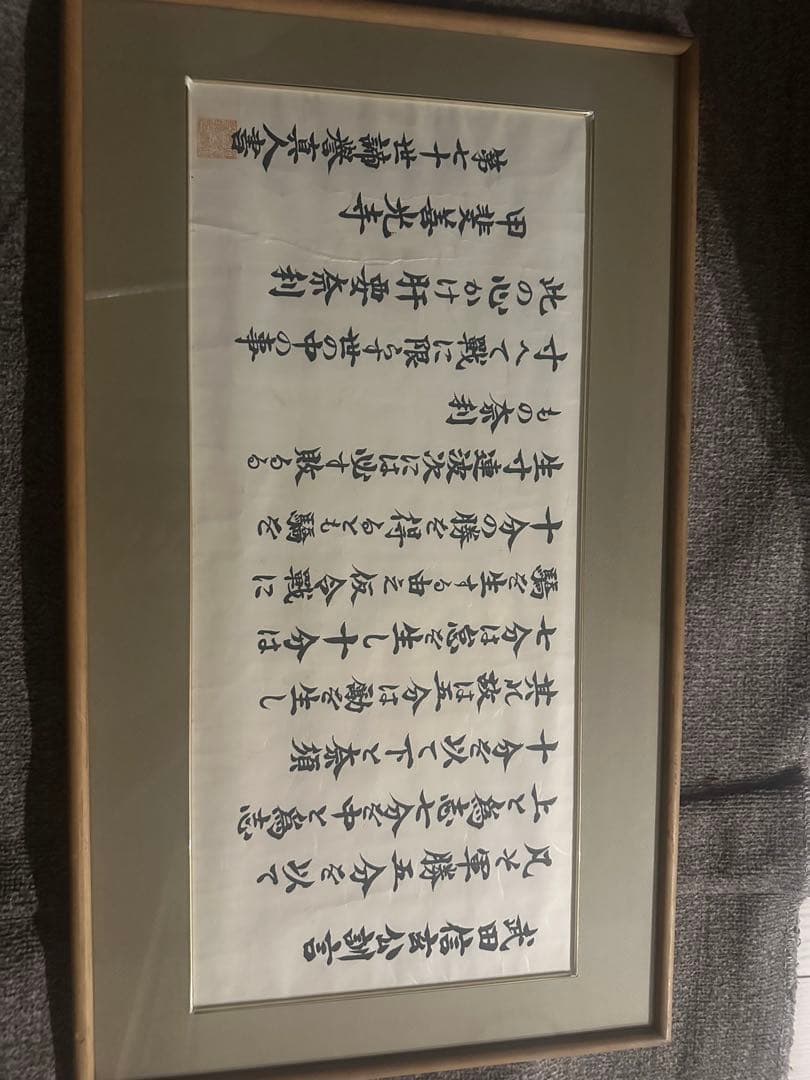 武田信玄公訓言
凡そ軍勝五分を以て
上と為志七分を中と為志
十分を以て下と奈須
其れ故は五分は励を生し
七分は怠を生し十分は
驕を生する由之仮令戦に
十分の勝を得るとも驕を
生寸連波次には必す敗るる
もの奈利
寸へて戰に限らす世の中の事
此の心かけ肝要奈利
甲斐善光寺
第七十世諦誉真人書